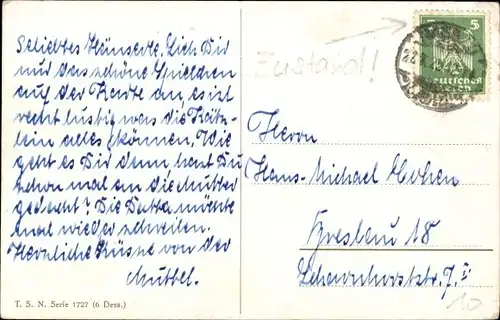 Geliebtes Heinserle. Sieh Dir
mal das schöne
auf der Karte an es ist
recht lustig was die Kätz-
lein alles können. Wie
geht es Dir denn hast Du
schon mal an die Muttel
gedacht? Die möchte
mal wieder schreiben.
Herzliche Küsse von der
Muttel.
T. S. N. Serie 1727 (6 Dess.)
Zustand!
5 5
Deutsches
Reich
Herrn
Hans-Michael Hohen
Breslau 18
Scharnhorststr. 7. I
10